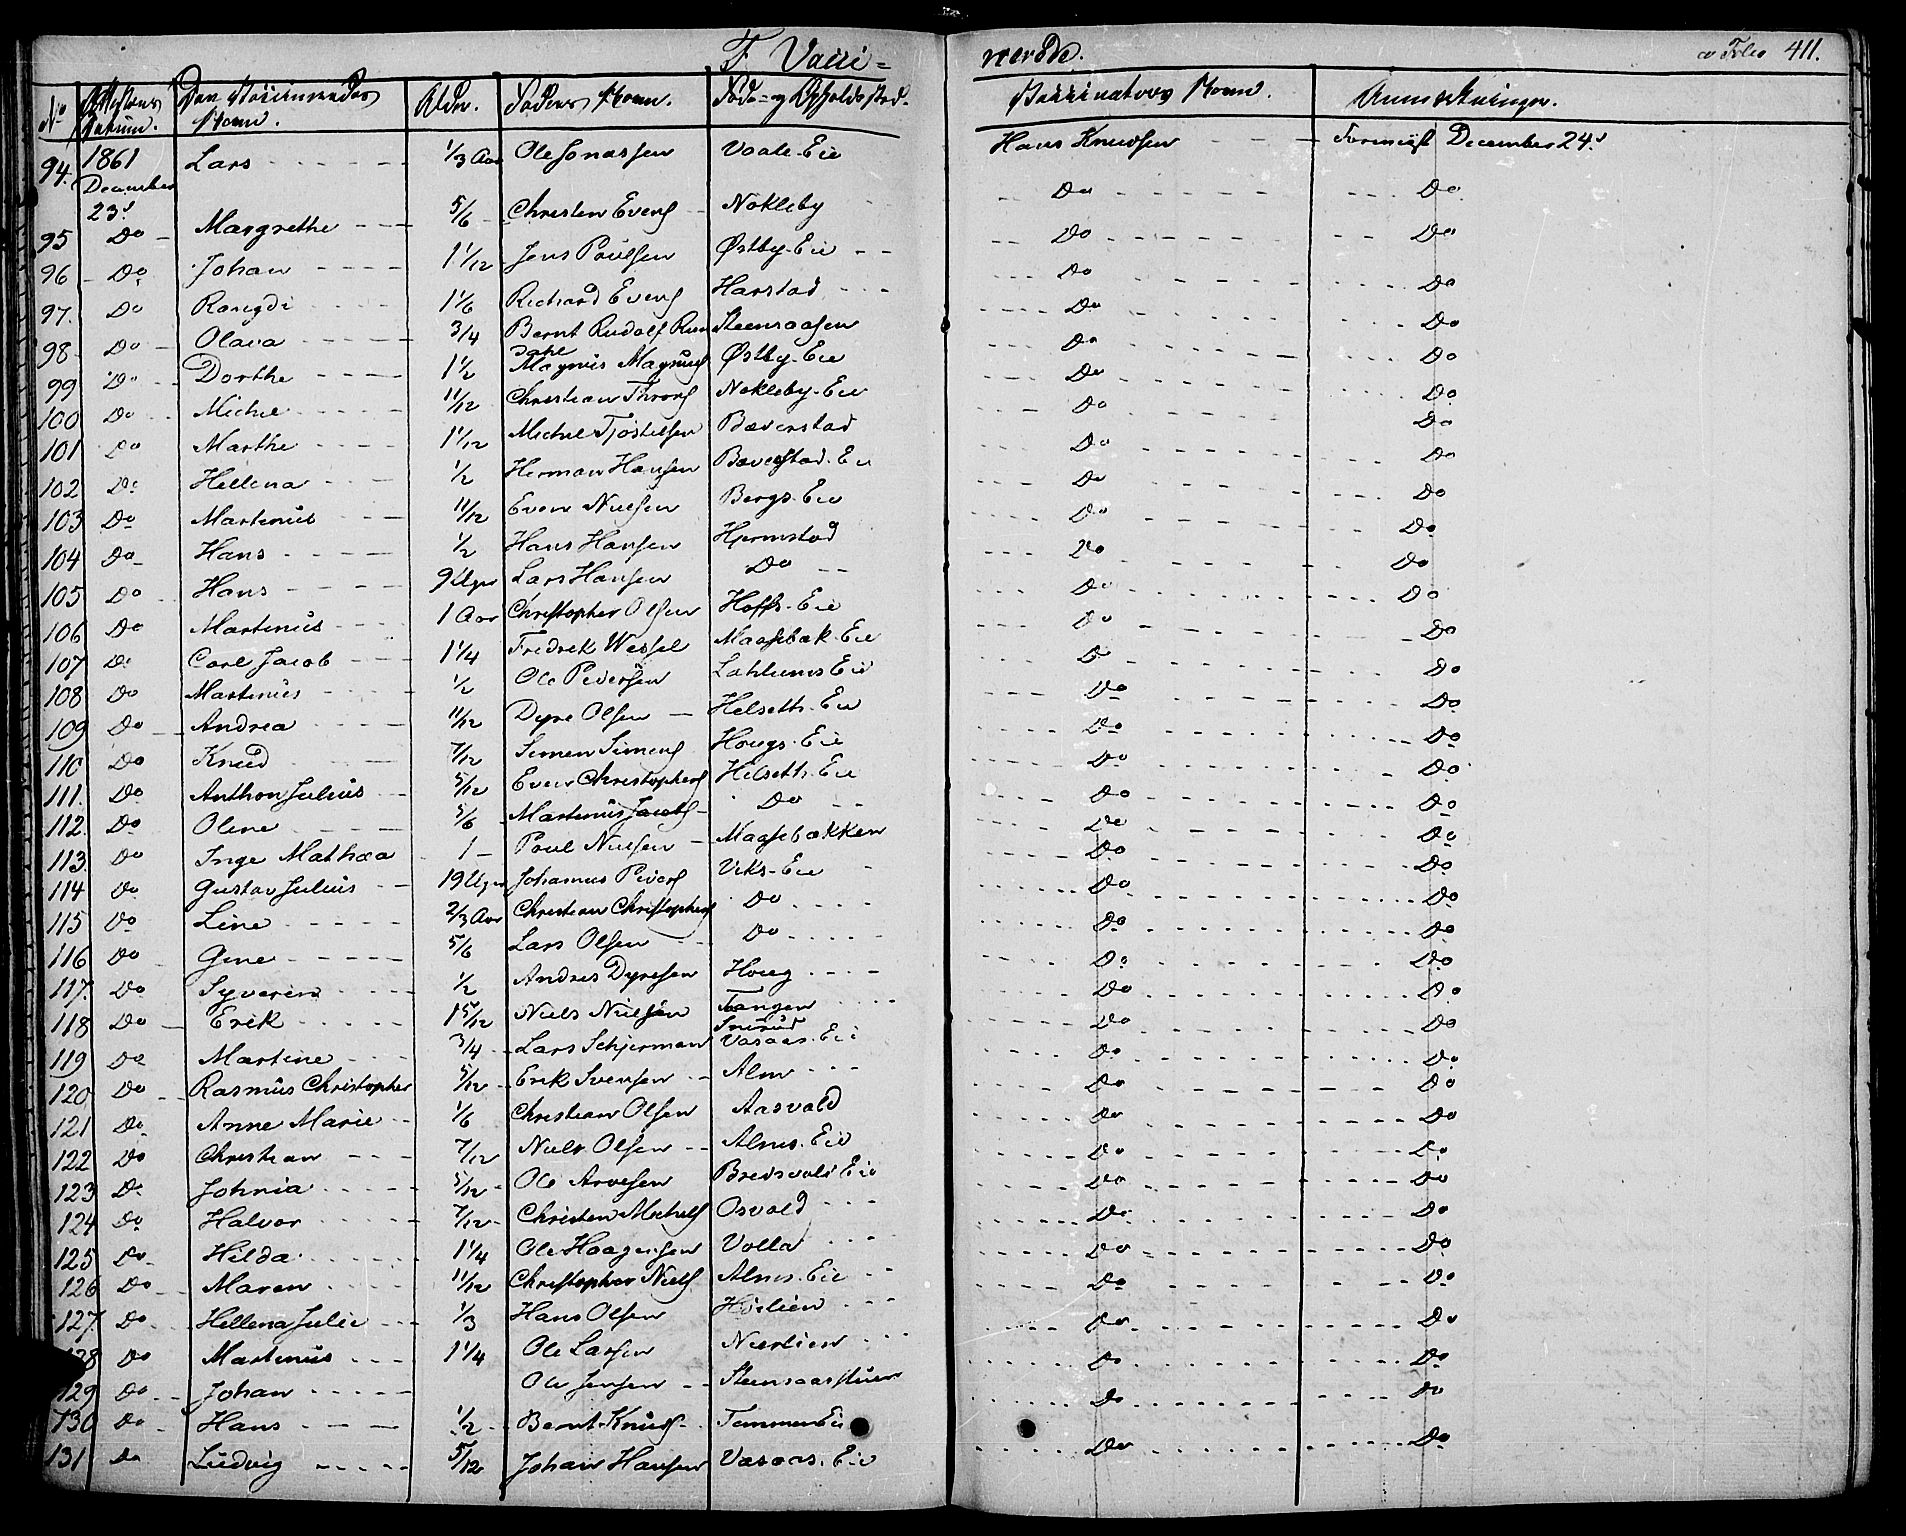 F. Vacci=
nerede.
Folio 411.
No
Attestens Datum.
Den Vaccineredes Navn.
Alder.
Faders Navn.
Føde- og Opholds Sted.
Vaccinateurs Navn.
Anmærkninger.
94. 1861 December 23d Lars 1/3 Aar Ole Jonassen Vaale-Eie Hans Knudsen Foreviist December 24d
95 Do Margrethe 5/6 Christen Evens Nokleby Do Do
96 Do Johan 1 1/12 Jens Poulsen Østby-Eie Do Do
97. Do Rangdi 1 1/6 Richard Evens Harstad Do Do
98 Do Olava 3/4 Bernt Rudolf Rundahl Steensaasen Do Do
99 Do Dorthe 1 1/2 Magnus Magnus Østby-Eie Do Do
100 Do Michel 11/12 Christian Thrors Nokleby-Eie Do Do
101 Do Marthe 1 1/12 Michel Tjøstelsen Bæverstad Do Do
102 Do Hellena 1/2 Herman Hansen Bæverstad-Eie Do Do
103 Do Martinus 11/12 Even Nielsen Bergs-Eie Do Do
104 Do Hans 1/2 Hans Hansen Hjermstad Do Do
105 Do Hans 9 Uger Lars Hansen Do Do Do
106 Do Martinus 1 Aar Christopher Olsen Hoffs-Eie Do Do
107 Do Carl Jacob 1 1/4 Fredrek Wessel Maassebæk-Eie Do Do
108 Do Martinus 1/2 Ole Pedersen Lahlums Eie Do Do
109 Do Andrea 11/12 Dyre Olsen Helseth-Eie Do Do
110 Do Knud 7/12 Simen Simens Hougs-Eie Do Do
111. Do Anthon Julius 5/12 Even Christophers Helseth-Eie Do Do
112. Do Oline 5/6 Martinus Jacobs Do Do Do
113. Do Inge Mathea 1 Poul Nielsen Maassebækken Do Do
114 Do Gustav Julius 19 Uger Johannes Peders Viks-Eie Do Do
115 Do Line 2/3 Aar Christian Christophers Do Do Do
116 Do Gine 5/6 Lars Olsen Do Do Do
117. Do Syverin 1/2 Andres Dyresen Houg Do Do
118 Do Erik 1 5/12 Niels Nielsen Tangen Do Do
119 Do Martine 3/4 Lars Schjerman Vasaas-Eie Do Do
120 Do Rasmus Christopher 5/12 Erik Svensen Alm Do Do
121 Do Anne Marie 1/6 Christian Olsen Aasvald Do Do
122 Do Christian 7/12 Niels Olsen Alms-Eie Do Do
123 Do Johnia 5/12 Ole Arvesen Bredsvold Eie Do Do
124 Do Halvor 7/12 Christen Michels Osvold Do Do
125 Do Hilda 1 1/4 Ole Haagensen Volla Do Do
126 Do Maren 11/12 Christopher Niels Alms-Eie Do Do
127. Do Hellena Julie 1/3 Hans Olsen Do Do
128 Do Martinus 1 1/4 Ole Larsen Nerlien Do Do
129 Do Johan Ole Jensen Steensaasstuen Do Do
130 Do Hans 1/2 Bernt Knuds Tommen Eie
131 Do Ludvig 5/12 Johan Hansen Vasaas-Eie Do Do